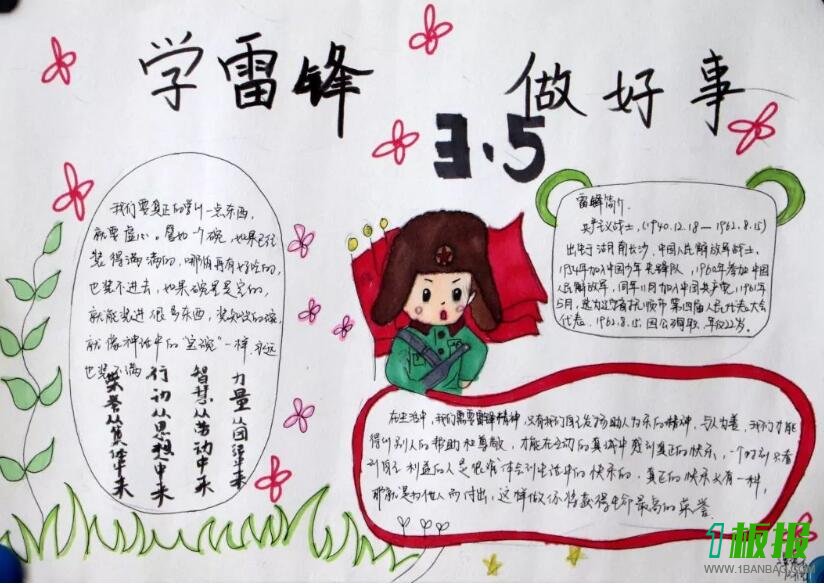 学雷锋 做好事
3.5
我们要真正的学习一点东西,
就要虚心。譬如一个碗,如果已经
装得满满的,哪怕再有好吃的,
也装不进去,如果碗里是空的,
就能装进很多东西,装知识的碗,
就像神话中的“宝碗”一样,永远
也装不满
力量从团结中来
智慧从劳动中来
行动从思想中来
荣誉从集体中来
雷锋简介:
共产主义战士,(1940.12.18—1962.8.15)
出生于湖南长沙,中国人民解放军战士,
1954年加入中国少年先锋队,1960年参加中国
人民解放军,同年11月加入中国共产党,1961年
5月,雷锋
抚顺市第四届人民代表大会
代表,1962.8.15,因公殉职,年仅22岁。
在生活中,我们需要雷锋精神,只有我们自己发扬助人为乐的精神,与人为善,我们才能
得到别人的帮助和尊敬,才能在互动的真诚中感到真正的快乐,一个时刻只看
到自己利益的人是很难体会到生活中的快乐的,真正的快乐只有一种,
那就是为他人而付出,这样做你将获得生命最高的荣誉
1板报
WWW.1BANBAO.COM